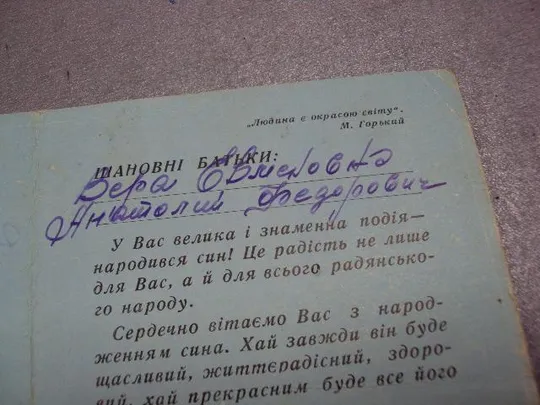 „Людина є окрасою світу“.
М. Горький
ШАНОВНІ БАТЬКИ:
Вера
Анатолий Федорович
У Вас велика і знаменна подія—
народився син! Це радість не лише
для Вас, а й для всього радянсько-
го народу.
Сердечно вітаємо Вас з народ-
женням сина. Хай завжди він буде
щасливий, життєрадісний, здоро-
вий, хай прекрасним буде все його